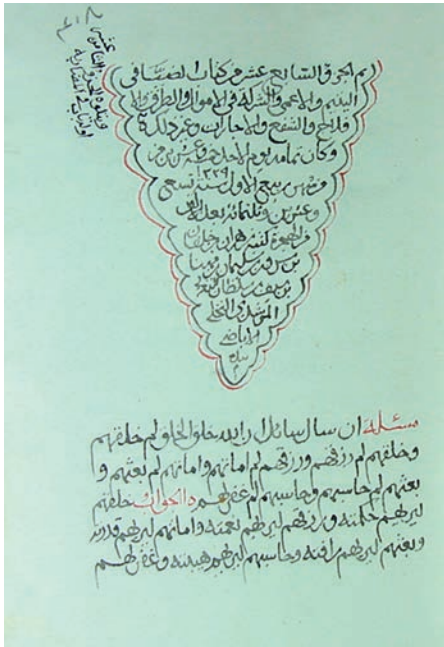 تم الجزؤ السابع عشر من كتاب المصنف في
اليتيم والاعمى والشركة في الاموال والطرق والا
فلاج والشفع والاجارات وغير ذلك
وكان تمامه يوم الاحد
من ربيع الاول سنة تسع ١٣٢٩
وعشرين وثلثمائة بعد الالف
من الهجرة
بن سليمان
بن سلطان
الاباضي
بيده
يتلوه الجزؤ الثامن عشر
مسئلة ان سال سائل ان الله خلق الخلق لم خلقهم
وخلقهم لم رزقهم ورزقهم لم اماتهم واماتهم لم بعثهم و
بعثهم لم حاسبهم وحاسبهم لم غفر لهم الجواب خلقهم
ليريهم حكمته ورزقهم ليريهم نعمته واماتهم ليريهم قدرته
وبعثهم ليريهم رافته وحاسبهم ليريهم هيبته وغفر لهم